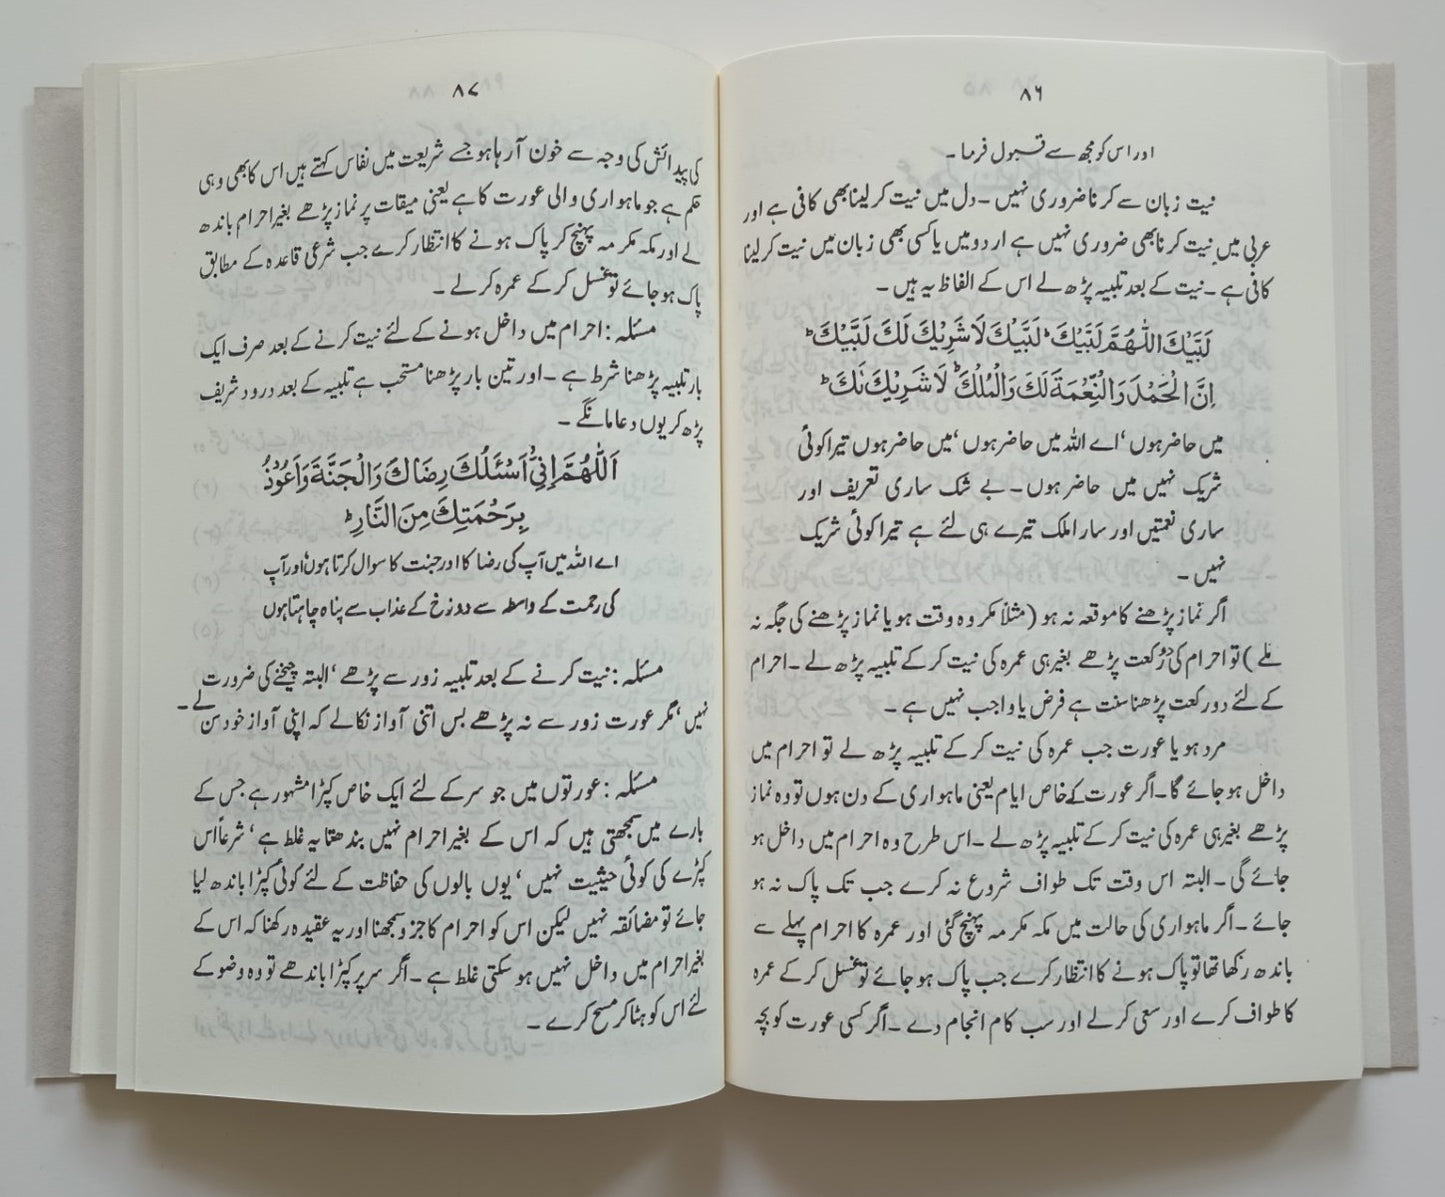 ۸۶
اور اس کو مجھ سے قبول فرما۔
نیت زبان سے کرنا ضروری نہیں۔ دل میں نیت کر لینا بھی کافی ہے اور
عربی میں نیت کرنا بھی ضروری نہیں ہے اردو میں یا کسی بھی زبان میں نیت کر لینا
کافی ہے۔ نیت کے بعد تلبیہ پڑھ لے اس کے الفاظ یہ ہیں۔
لَبَّيْكَ اَللّٰهُمَّ لَبَّيْكَ ؕ لَبَّيْكَ لَا شَرِيْكَ لَكَ لَبَّيْكَ ؕ
اِنَّ الْحَمْدَ وَالنِّعْمَةَ لَكَ وَالْمُلْكَ ؕ لَا شَرِيْكَ لَكَ ؕ
میں حاضر ہوں ‘اے اللہ میں حاضر ہوں ‘میں حاضر ہوں تیرا کوئی
شریک نہیں میں حاضر ہوں۔ بے شک ساری تعریف اور
ساری نعمتیں اور سارا ملک تیرے ہی لئے ہے تیرا کوئی شریک
نہیں۔
اگر نماز پڑھنے کا موقعہ نہ ہو (مثلاً مکروہ وقت ہو یا نماز پڑھنے کی جگہ نہ
ملے) تو احرام کی دو رکعت پڑھے بغیر ہی عمرہ کی نیت کر کے تلبیہ پڑھ لے۔ احرام
کے لئے دو رکعت پڑھنا سنت ہے فرض یا واجب نہیں ہے۔
مرد ہو یا عورت جب عمرہ کی نیت کر کے تلبیہ پڑھ لے تو احرام میں
داخل ہو جائے گا۔ اگر عورت کے خاص ایام یعنی ماہواری کے دن ہوں تو وہ نماز
پڑھے بغیر ہی عمرہ کی نیت کر کے تلبیہ پڑھ لے۔ اس طرح وہ احرام میں داخل ہو
جائے گی۔ البتہ اس وقت تک طواف شروع نہ کرے جب تک پاک نہ ہو
جائے۔ اگر ماہواری کی حالت میں مکہ مکرمہ پہنچ گئی اور عمرہ کا احرام پہلے سے
باندھ رکھا تھا تو پاک ہونے کا انتظار کرے جب پاک ہو جائے تو غسل کر کے عمرہ
کا طواف کرے اور سعی کر لے اور سب کام انجام دے۔ اگر کسی عورت کو بچہ
۸۷
کی پیدائش کی وجہ سے خون آ رہا ہو جسے شریعت میں نفاس کہتے ہیں اس کا بھی وہی
حکم ہے جو ماہواری والی عورت کا ہے یعنی میقات پر نماز پڑھے بغیر احرام باندھ
لے اور مکہ مکرمہ پہنچ کر پاک ہونے کا انتظار کرے جب شرعی قاعدہ کے مطابق
پاک ہو جائے تو غسل کر کے عمرہ کر لے۔
مسئلہ : احرام میں داخل ہونے کے لئے نیت کرنے کے بعد صرف ایک
بار تلبیہ پڑھنا شرط ہے۔ اور تین بار پڑھنا مستحب ہے تلبیہ کے بعد درود شریف
پڑھ کر یوں دعا مانگے۔
اَللّٰهُمَّ اِنِّيْ اَسْئَلُكَ رِضَاكَ وَالْجَنَّةَ وَاَعُوْذُ
بِرَحْمَتِكَ مِنَ النَّارِ ؕ
اے اللہ میں آپ کی رضا کا اور جنت کا سوال کرتا ہوں اور آپ
کی رحمت کے واسطہ سے دوزخ کے عذاب سے پناہ چاہتا ہوں
مسئلہ : نیت کرنے کے بعد تلبیہ زور سے پڑھے ‘البتہ چیخنے کی ضرورت
نہیں ‘مگر عورت زور سے نہ پڑھے بس اتنی آواز نکالے کہ اپنی آواز خود سن لے۔
مسئلہ : عورتوں میں جو سر کے لئے ایک خاص کپڑا مشہور ہے جس کے
بارے میں سمجھتی ہیں کہ اس کے بغیر احرام نہیں بندھتا یہ غلط ہے ‘شرعاً اس
کپڑے کی کوئی حیثیت نہیں ‘یوں بالوں کی حفاظت کے لئے کوئی کپڑا باندھ لیا
جائے تو مضائقہ نہیں لیکن اس کو احرام کا جزو سمجھنا اور یہ عقیدہ رکھنا کہ اس کے
بغیر احرام میں داخل نہیں ہو سکتی غلط ہے۔ اگر سر پر کپڑا باندھے تو وہ وضو کے
لئے اس کو ہٹا کر مسح کرے۔